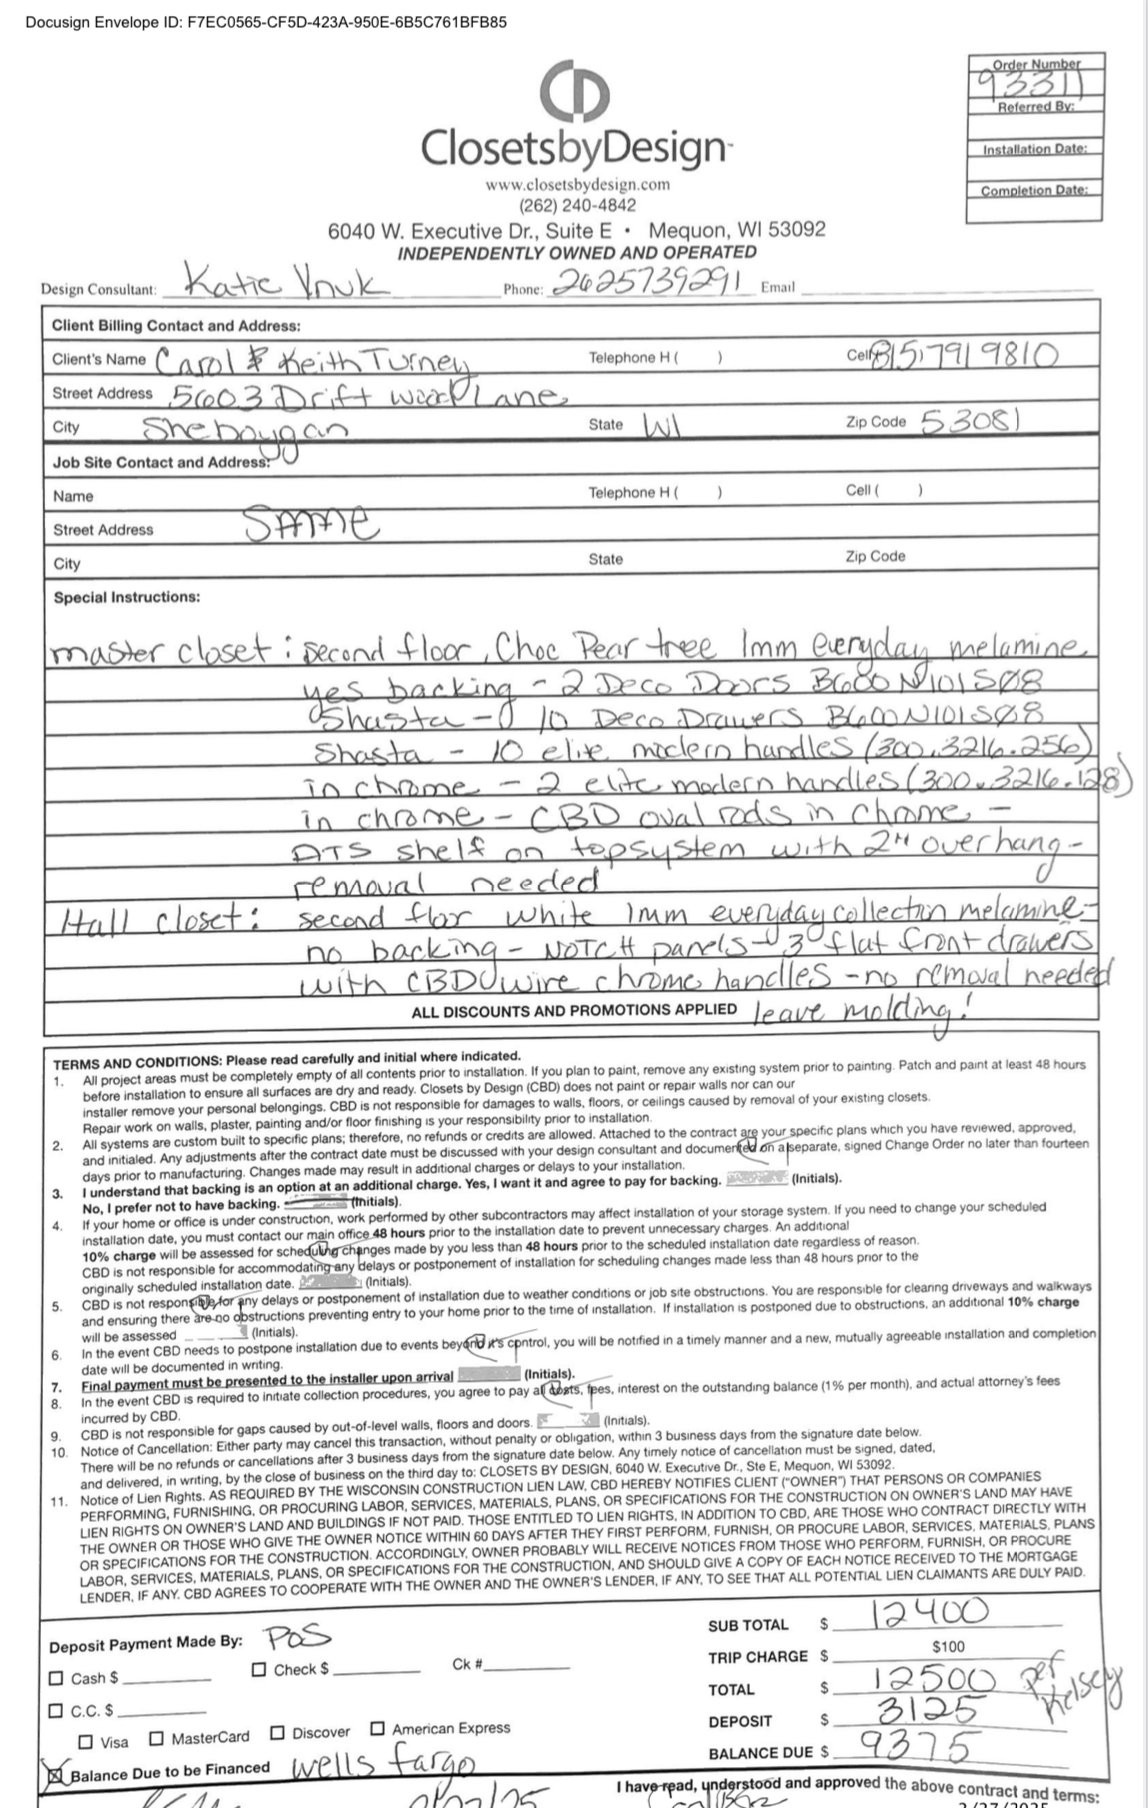 Docusign Envelope ID: F7EC0565-CF5D-423A-950E-6B5C761BFB85
Order Number
93311
Referred By:
Installation Date:
Completion Date:
CD
ClosetsbyDesign
www.closetsbydesign.com
(262) 240-4842
6040 W. Executive Dr., Suite E • Mequon, WI 53092
INDEPENDENTLY OWNED AND OPERATED
Design Consultant: Katie Vnuk Phone: 2625739291 Email
Client Billing Contact and Address:
Client's Name Carol & Keith Turney Telephone H ( ) Cell (815) 7919810
Street Address 5603 Driftwood Lane
City Sheboygan State WI Zip Code 53081
Job Site Contact and Address:
Name Telephone H ( ) Cell ( )
Street Address SAME
City State Zip Code
Special Instructions:
master closet: second floor, Choc Pear tree 1mm everyday melamine
yes backing - 2 Deco Doors B600N101S08
Shasta - 10 Deco Drawers B600N101S08
Shasta - 10 elite modern handles (300.3216.256)
in chrome - 2 elite modern handles (300.3216.128)
in chrome - CBD oval rods in chrome -
DTS shelf on topsystem with 2" overhang -
removal needed
Hall closet: second floor white 1mm everyday collection melamine -
no backing - NOTCH panels - 3 flat front drawers
with CBD wire chrome handles - no removal needed
ALL DISCOUNTS AND PROMOTIONS APPLIED leave molding!
TERMS AND CONDITIONS: Please read carefully and initial where indicated.
1. All project areas must be completely empty of all contents prior to installation. If you plan to paint, remove any existing system prior to painting. Patch and paint at least 48 hours
before installation to ensure all surfaces are dry and ready. Closets by Design (CBD) does not paint or repair walls nor can our
installer remove your personal belongings. CBD is not responsible for damages to walls, floors, or ceilings caused by removal of your existing closets.
Repair work on walls, plaster, painting and/or floor finishing is your responsibility prior to installation.
2. All systems are custom built to specific plans; therefore, no refunds or credits are allowed. Attached to the contract are your specific plans which you have reviewed, approved,
and initialed. Any adjustments after the contract date must be discussed with your design consultant and documented on a separate, signed Change Order no later than fourteen
days prior to manufacturing. Changes made may result in additional charges or delays to your installation.
3. I understand that backing is an option at an additional charge. Yes, I want it and agree to pay for backing. (Initials).
No, I prefer not to have backing. (Initials).
4. If your home or office is under construction, work performed by other subcontractors may affect installation of your storage system. If you need to change your scheduled
installation date, you must contact our main office 48 hours prior to the installation date to prevent unnecessary charges. An additional
10% charge will be assessed for scheduling changes made by you less than 48 hours prior to the scheduled installation date regardless of reason.
CBD is not responsible for accommodating any delays or postponement of installation for scheduling changes made less than 48 hours prior to the
originally scheduled installation date. (Initials).
5. CBD is not responsible for any delays or postponement of installation due to weather conditions or job site obstructions. You are responsible for clearing driveways and walkways
and ensuring there are no obstructions preventing entry to your home prior to the time of installation. If installation is postponed due to obstructions, an additional 10% charge
will be assessed (Initials).
6. In the event CBD needs to postpone installation due to events beyond it's control, you will be notified in a timely manner and a new, mutually agreeable installation and completion
date will be documented in writing.
7. Final payment must be presented to the installer upon arrival (Initials).
8. In the event CBD is required to initiate collection procedures, you agree to pay all costs, fees, interest on the outstanding balance (1% per month), and actual attorney's fees
incurred by CBD.
9. CBD is not responsible for gaps caused by out-of-level walls, floors and doors. (Initials).
10. Notice of Cancellation: Either party may cancel this transaction, without penalty or obligation, within 3 business days from the signature date below.
There will be no refunds or cancellations after 3 business days from the signature date below. Any timely notice of cancellation must be signed, dated,
and delivered, in writing, by the close of business on the third day to: CLOSETS BY DESIGN, 6040 W. Executive Dr., Ste E, Mequon, WI 53092.
11. Notice of Lien Rights. AS REQUIRED BY THE WISCONSIN CONSTRUCTION LIEN LAW, CBD HEREBY NOTIFIES CLIENT ("OWNER") THAT PERSONS OR COMPANIES
PERFORMING, FURNISHING, OR PROCURING LABOR, SERVICES, MATERIALS, PLANS, OR SPECIFICATIONS FOR THE CONSTRUCTION ON OWNER'S LAND MAY HAVE
LIEN RIGHTS ON OWNER'S LAND AND BUILDINGS IF NOT PAID. THOSE ENTITLED TO LIEN RIGHTS, IN ADDITION TO CBD, ARE THOSE WHO CONTRACT DIRECTLY WITH
THE OWNER OR THOSE WHO GIVE THE OWNER NOTICE WITHIN 60 DAYS AFTER THEY FIRST PERFORM, FURNISH, OR PROCURE LABOR, SERVICES, MATERIALS, PLANS
OR SPECIFICATIONS FOR THE CONSTRUCTION. ACCORDINGLY, OWNER PROBABLY WILL RECEIVE NOTICES FROM THOSE WHO PERFORM, FURNISH, OR PROCURE
LABOR, SERVICES, MATERIALS, PLANS, OR SPECIFICATIONS FOR THE CONSTRUCTION, AND SHOULD GIVE A COPY OF EACH NOTICE RECEIVED TO THE MORTGAGE
LENDER, IF ANY. CBD AGREES TO COOPERATE WITH THE OWNER AND THE OWNER'S LENDER, IF ANY, TO SEE THAT ALL POTENTIAL LIEN CLAIMANTS ARE DULY PAID.
Deposit Payment Made By: POS
Cash $ Check $ Ck #
C.C. $
Visa MasterCard Discover American Express
Balance Due to be Financed wells fargo
SUB TOTAL $ 12400
TRIP CHARGE $ $100
TOTAL $ 12500 per Kelsey
DEPOSIT $ 3125
BALANCE DUE $ 9375
I have read, understood and approved the above contract and terms: